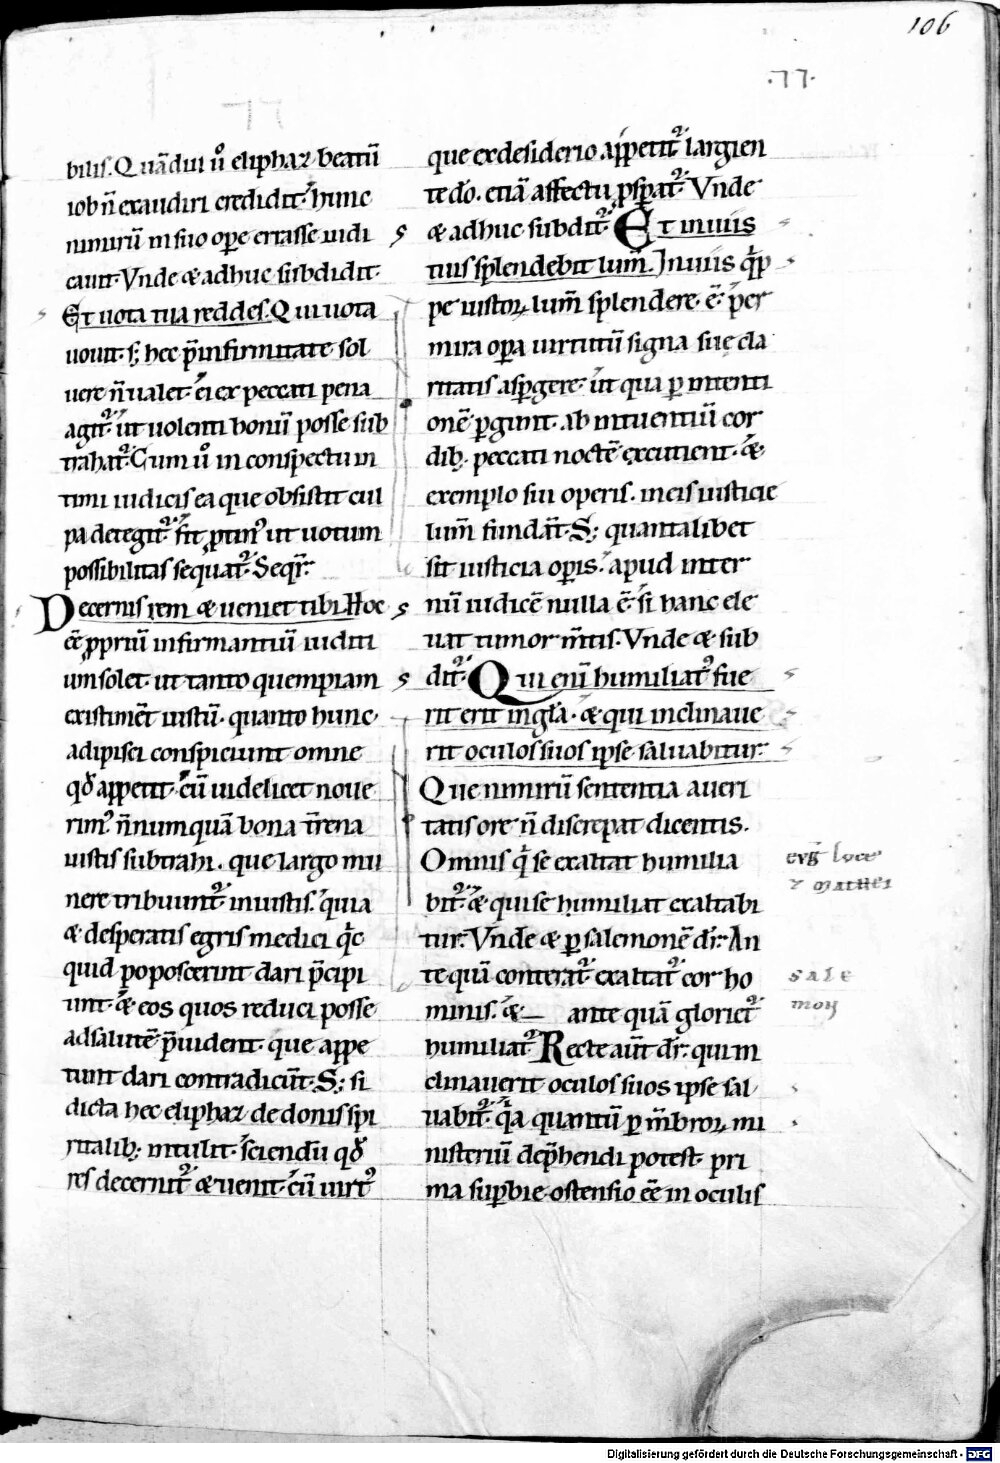 106
.77.
bilis. Quādiu u͛o eliphaz beatū
iob n̄ exaudiri credidit. hunc
nimirū in suo oꝑe errasse iudi
cauit. Vnde & adhuc subdidit.
Et uota tua reddes. Qui uota
uouit. sꝫ hec p̄ infirmitate sol
uere n̄ ualet. ei ex peccati pena
agit᷑. ut uolenti bonū posse sub
trahat᷑. Cum u͛o in conspectu in
timi iudicis ea que obsistit cul
pa detegit᷑. fit ꝓtinꝰ ut uotum
possibilitas sequat᷑. Seqr̄.
Decernis rem & ueniet tibi. Hoc
eē ꝓpriū infirmantiū iuditi
um solet. ut tanto quempiam
existimēt iustū. quanto hunc
adipisci conspiciunt omne
qđ appetit. cū uidelicet noue
rimꝰ n̄ numquā bona t̄rena
iustis subtrahi. que largo mu
nere tribuunt᷑ iniustis. quia
& desperatis egris medici qͥc
quid poposcerint dari p̄cipi
unt. & eos quos reduci posse
ad salutē p̄uident. que appe
tunt dari contradicūt. Sꝫ si
dicta hec eliphaz de donis spi
ritalibꝫ intulit. sciendū qđ
res decernit᷑ & uenit. cū uirtꝰ
que ex desiderio appetit᷑ largien
te dō. etiā affectu ꝓsꝑat᷑. Vnde
& adhuc subdit᷑. Et in uiis
tuis splendebit lum̄. In uiis qͥp
pe iustoꝝ lum̄ splendere. ē. per
mira oꝑa uirtutū signa sue cla
ritatis aspergere. ut qua ꝑ intenti
onē ꝑgunt. ab intuentiū cor
dibꝫ peccati noctē excutient. &
exemplo sui operis. in eis iusticie
lum̄ fundāt. Sꝫ quantalibet
sit iusticia oꝑis. apud inter
nū iudicē nulla ē. si hanc ele
uat tumor m̄tis. Vnde & sub
dit᷑. Qui enī humiliatꝰ fue
rit erit in gl̄a. & qui inclinaue
rit oculos suos ipse saluabitur.
Que nimirū sententia a ueri
tatis ore n̄ discrepat dicentis.
Omnis qͥ se exaltat humilia
bit᷑. & qui se humiliat exaltabi
tur. Vnde & ꝑ salemonē dr̄. An
te quā conterat᷑ exaltat᷑ cor ho
minis. & ante quā gloriet᷑
humiliat᷑. Recte aūt dr̄. qui in
clinauerit oculos suos ipse sal
uabit᷑. qͥa quantū ꝑ m̄broꝝ mi
nisteriū dep̄hendi potest. pri
ma suꝑbie ostensio eē in oculis
evḡ luce
⁊ mathei
sale
mon
Digitalisierung gefördert durch die Deutsche Forschungsgemeinschaft - DFG